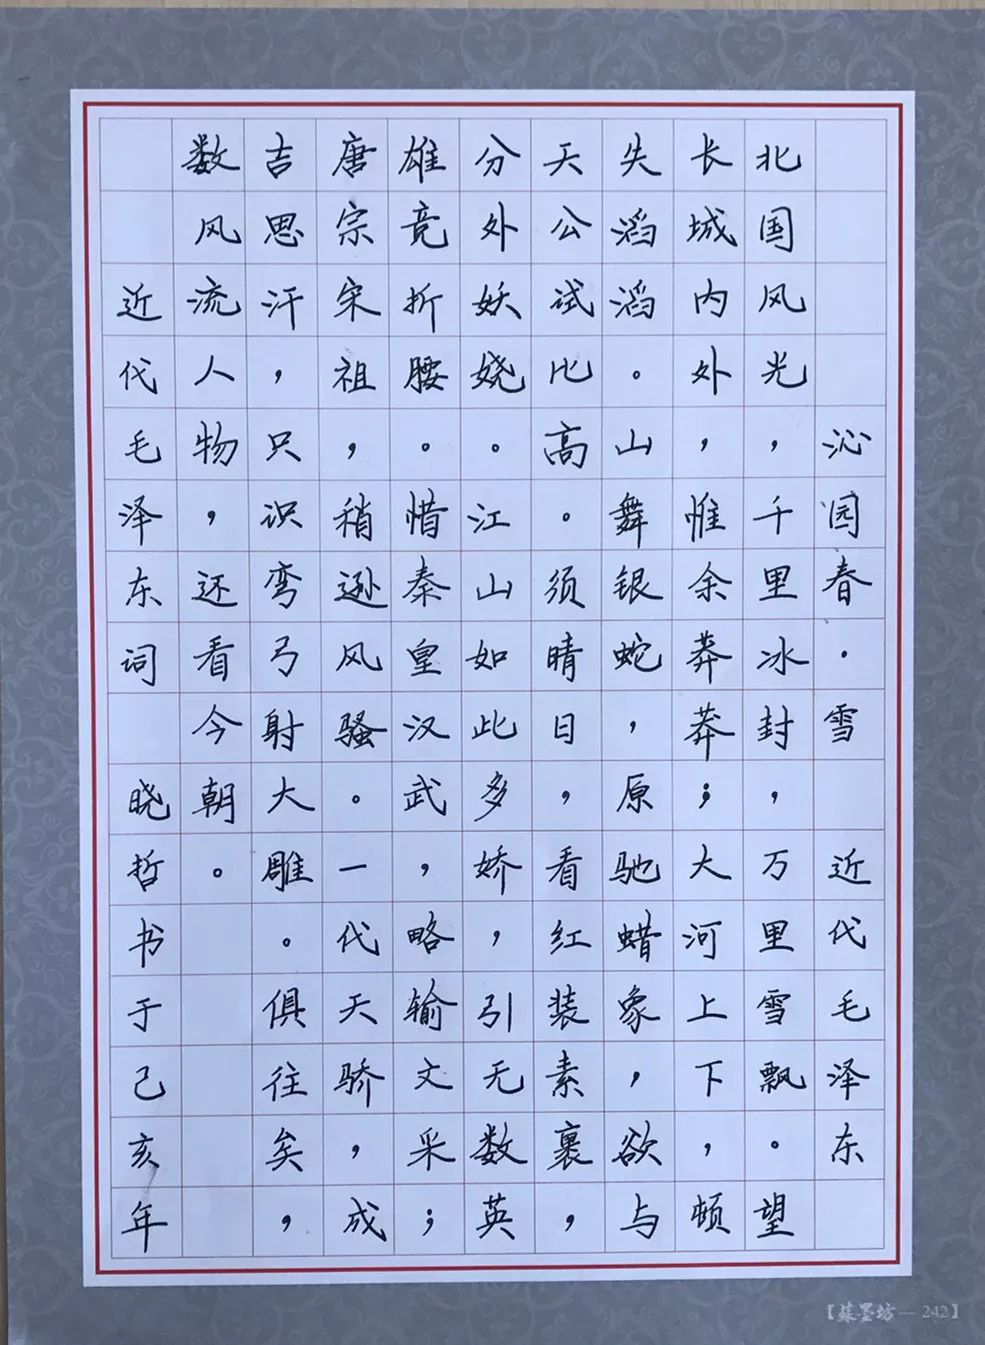 沁园春·雪 近代毛泽东
北国风光，千里冰封，万里雪飘。望
长城内外，惟余莽莽；大河上下，顿
失滔滔。山舞银蛇，原驰蜡象，欲与
天公试比高。须晴日，看红装素裹，
分外妖娆。江山如此多娇，引无数英
雄竞折腰。惜秦皇汉武，略输文采；
唐宗宋祖，稍逊风骚。一代天骄，成
吉思汗，只识弯弓射大雕。俱往矣，
数风流人物，还看今朝。
近代毛泽东词 晓哲书于己亥年
【蘇墨坊—242】